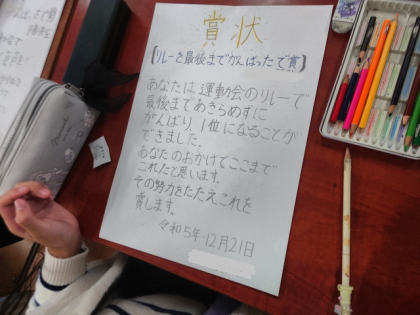 賞状
【リレーを最後までがんばったで賞】
あなたは運動会のリレーで
最後まであきらめずに
がんばり、1位になることが
できました。
あなたのおかげでここまで
これたと思います。
その努力をたたえこれを
賞します。
令和5年12月21日